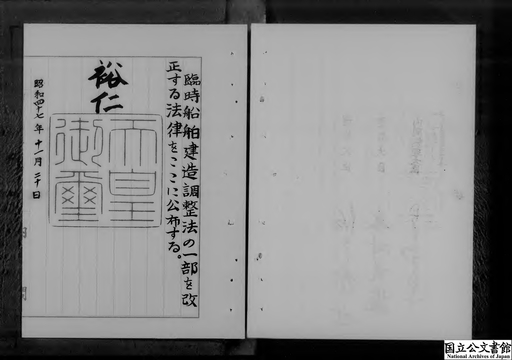 臨時船舶建造調整法の一部を改
正する法律をここに公布する。
裕仁
天皇
御璽
昭和四十七年十一月二十日
国立公文書館
National Archives of Japan